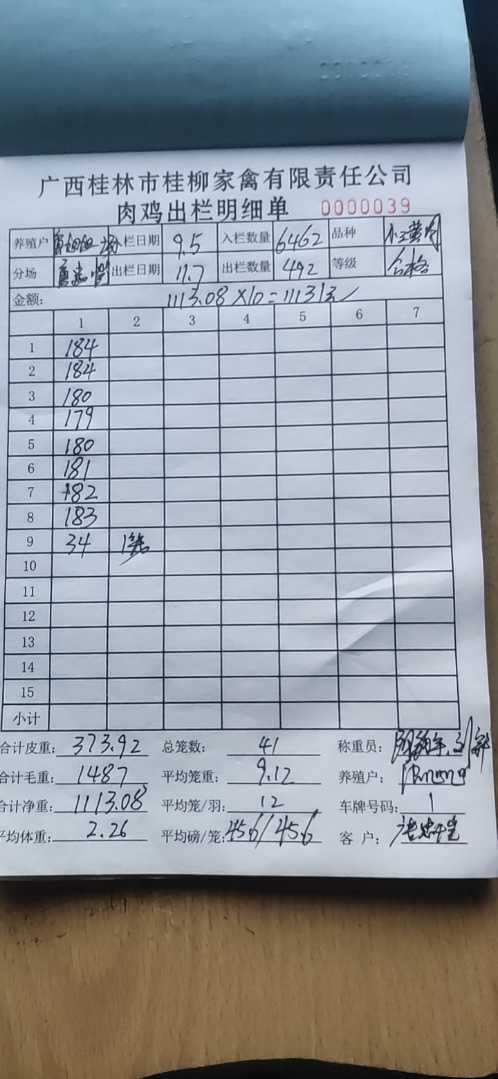 广西桂林市桂柳家禽有限责任公司
肉鸡出栏明细单 0000039
养殖户 入栏日期 9.5 入栏数量 6462 品种
分场 出栏日期 11.7 出栏数量 492 等级 合格
金额: 1113.08×10=11131元
1 2 3 4 5 6 7
1 184
2 184
3 180
4 179
5 180
6 181
7 182
8 183
9 34 1笼
10
11
12
13
14
15
小计
合计皮重: 373.92 总笼数: 41 称重员:
合计毛重: 1487 平均笼重: 9.12 养殖户:
合计净重: 1113.08 平均笼/羽: 12 车牌号码: 1
平均体重: 2.26 平均磅/笼: 456/456 客 户: